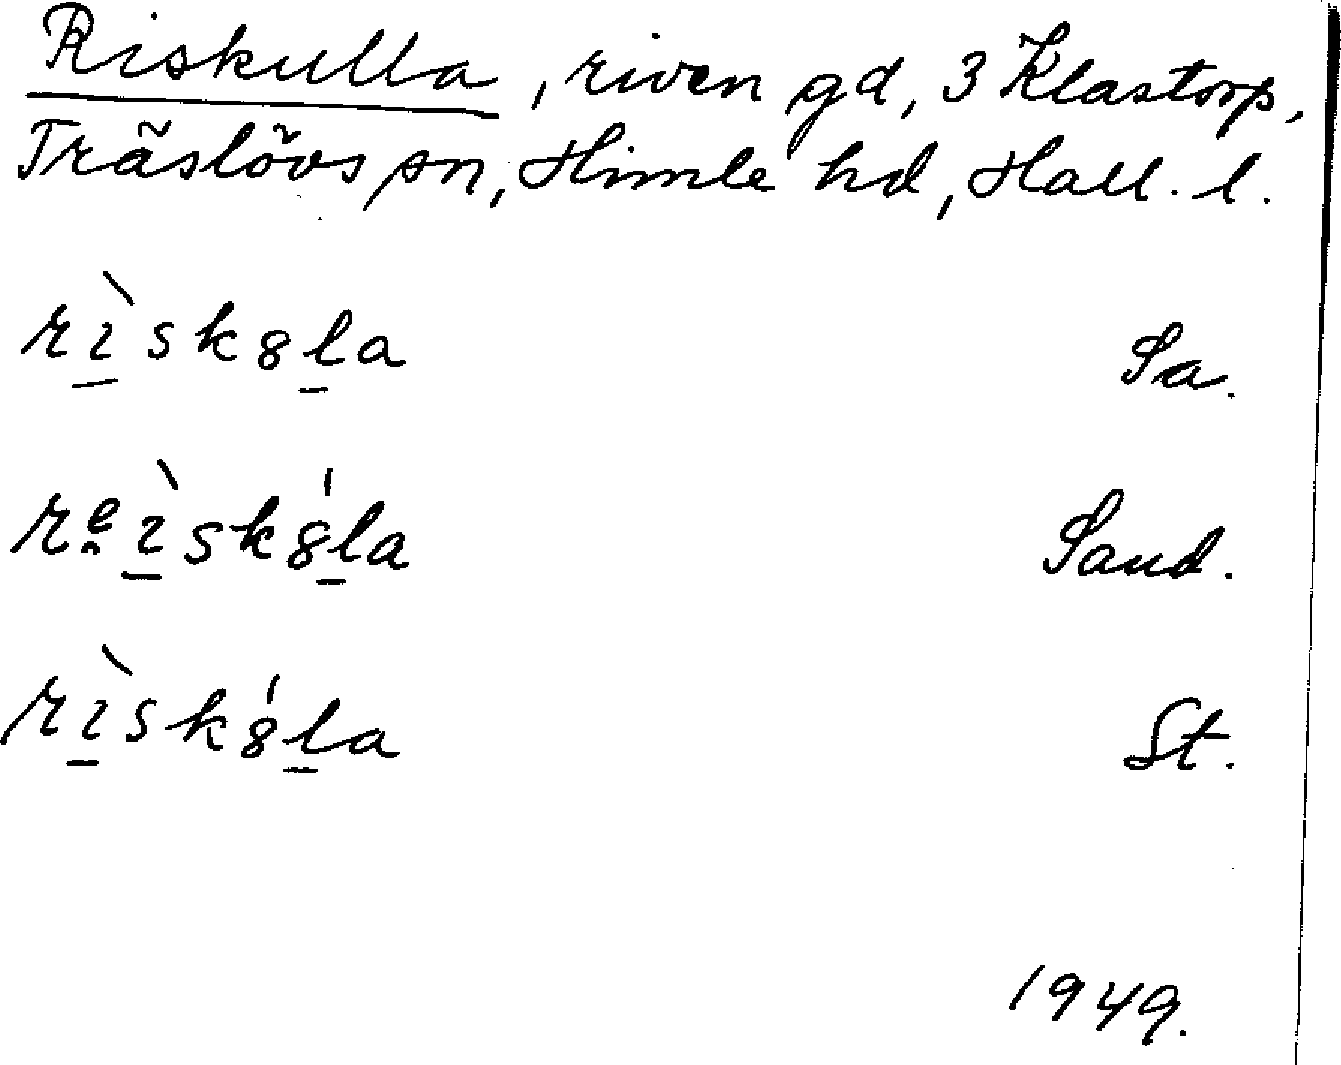 Riskulla, riven gd, 3 Klastorp,
Träslövs sn, Himle hd, Hall. l.
rɪ̲̀sk8l̲a Sa.
rᵉɪ̲̀sk8́l̲a Sand.
rɪ̲̀sk8́l̲a St.
1949.